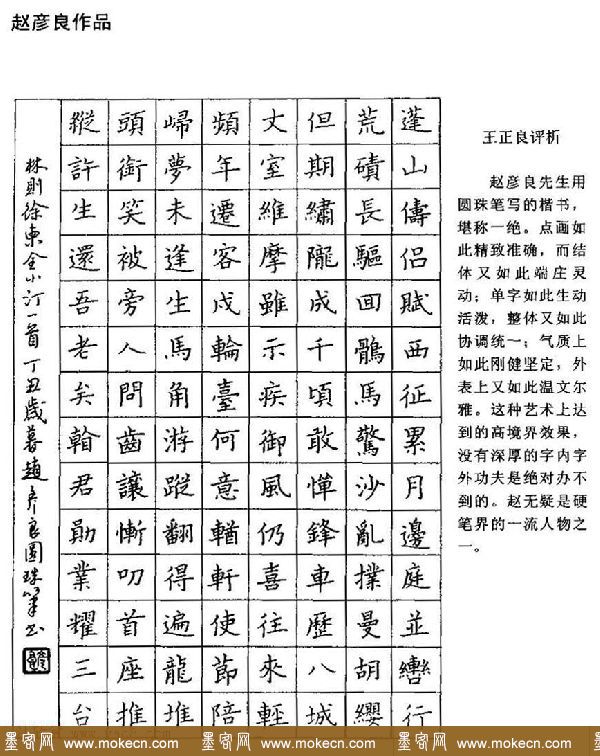 赵彦良作品
蓬山儔侣賦西征累月邊庭並轡行
荒磧長驅回鶻馬驚沙亂撲曼胡纓
但期繡隴成千頃敢憚鋒車歷八城
丈室維摩雖示疾御風仍喜往來輕
頻年遷客戍輪臺何意輶軒使節陪
歸夢未逢生馬角游蹤翻得遍龍堆
頭銜笑被旁人問齒讓慚叨首座推
縱許生還吾老矣翰君勛業耀三台
林則徐東全小汀一首丁丑歲暮趙彥良圓珠筆書
王正良评析
赵彦良先生用
圆珠笔写的楷书，
堪称一绝。点画如
此精致准确，而结
体又如此端庄灵
动；单字如此生动
活泼，整体又如此
协调统一；气质上
如此刚健坚定，外
表上又如此温文尔
雅。这种艺术上达
到的高境界效果，
没有深厚的字内字
外功夫是绝对办不
到的。赵无疑是硬
笔界的一流人物之
一。
墨客网 www.mokecn.com 墨客网 www.mokecn.com 墨客网 www.mokecn.com